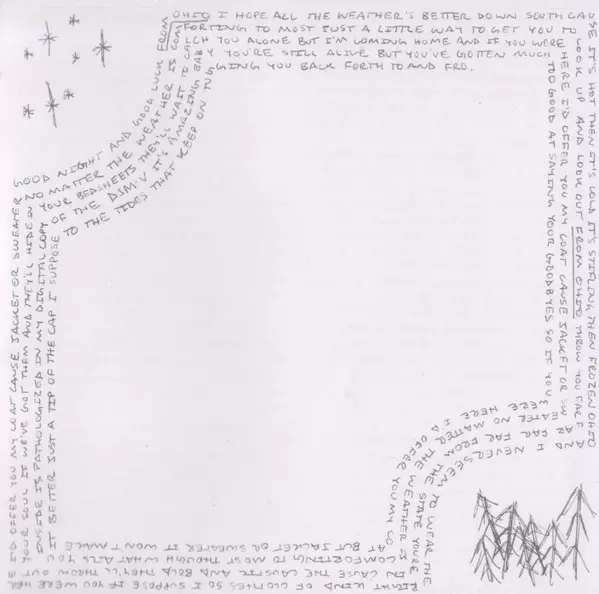 OHIO I HOPE ALL THE WEATHER'S BETTER DOWN SOUTH CAU
SE IT'S HOT THEN IT'S COLD IT'S STIFLING THEN FROZEN OHIO
AND I NEVER SEEM TO WEAR THE
RIGHT KIND OF CLOTHES SO I SUPPOSE IF YOU WERE HER
E I'D OFFER YOU MY COAT CAUSE JACKET OR SWEATER
NO MATTER THE WEATHER IS COM
FORTING TO MOST JUST A LITTLE WAY TO GET YOU TO
LOOK UP AND LOOK OUT FROM OHIO THROW YOU FAR F
AR FAR FROM THE STATE YOU'RE
IN CAUSE THE CAUSTIC AND BOLD THEY'LL THROW OUT
YOUR SOUL IF WE'VE GOT THEM AND THEY'LL HIDE IN
YOUR BEDSHEETS THEY'LL WAIT TO CA
TCH YOU ALONE BUT I'M COMING HOME AND IF YOU WERE
HERE I'D OFFER YOU MY COAT CAUSE JACKET OR SW
EATER NO MATTER THE WEATHER IS
COMFORTING TO MOST THOUGH WHAT AILS YOU
INSIDE IS PATHOLOGIZED IN MY DIGITAL COPY
OF THE DSM-V IT'S AMAZING BAB
Y YOU'RE STILL ALIVE BUT YOU'VE GOTTEN MUCH
TOO GOOD AT SAYING YOUR GOODBYES SO IF YOU
WERE HERE I'D OFFER YOU MY CO
AT BUT JACKET OR SWEATER IT WON'T MAKE
IT BETTER JUST A TIP OF THE CAP I SUPPOSE
TO THE TIDES THAT KEEP ON TUG
GING YOU BACK FORTH TO AND FRO.
GOOD NIGHT AND GOOD LUCK FROM